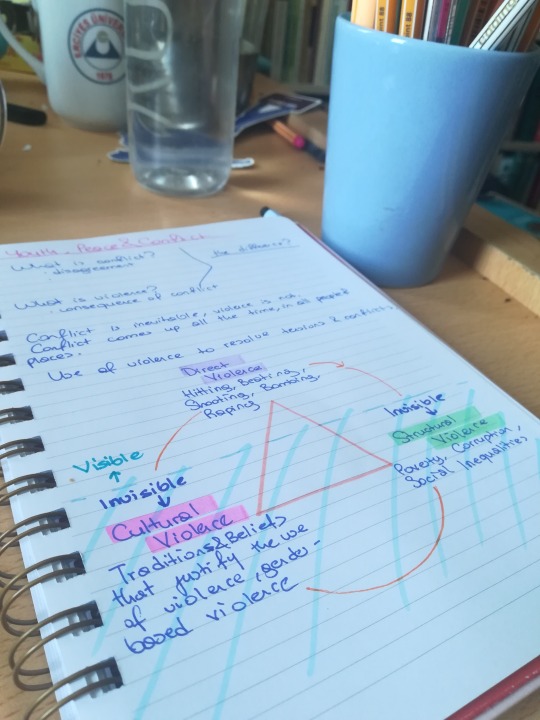 ERCİYES ÜNİVERSİ
1978
Youth, Peace & Conflict
What is conflict?
the difference?
· disagreement
What is violence?
· consequence of conflict
Conflict is inevitable, violence is not.
Conflict comes up all the time, in all people &
places.
Use of violence to resolve tensions & conflicts
Direct
Violence
Hitting, Beating,
Shooting, Bombing,
Raping
Invisible
Structural
Violence
Poverty, Corruption,
Social Inequalities
Visible
Invisible
Cultural
Violence
Traditions & Beliefs
that justify the use
of violence (gender-
based violence